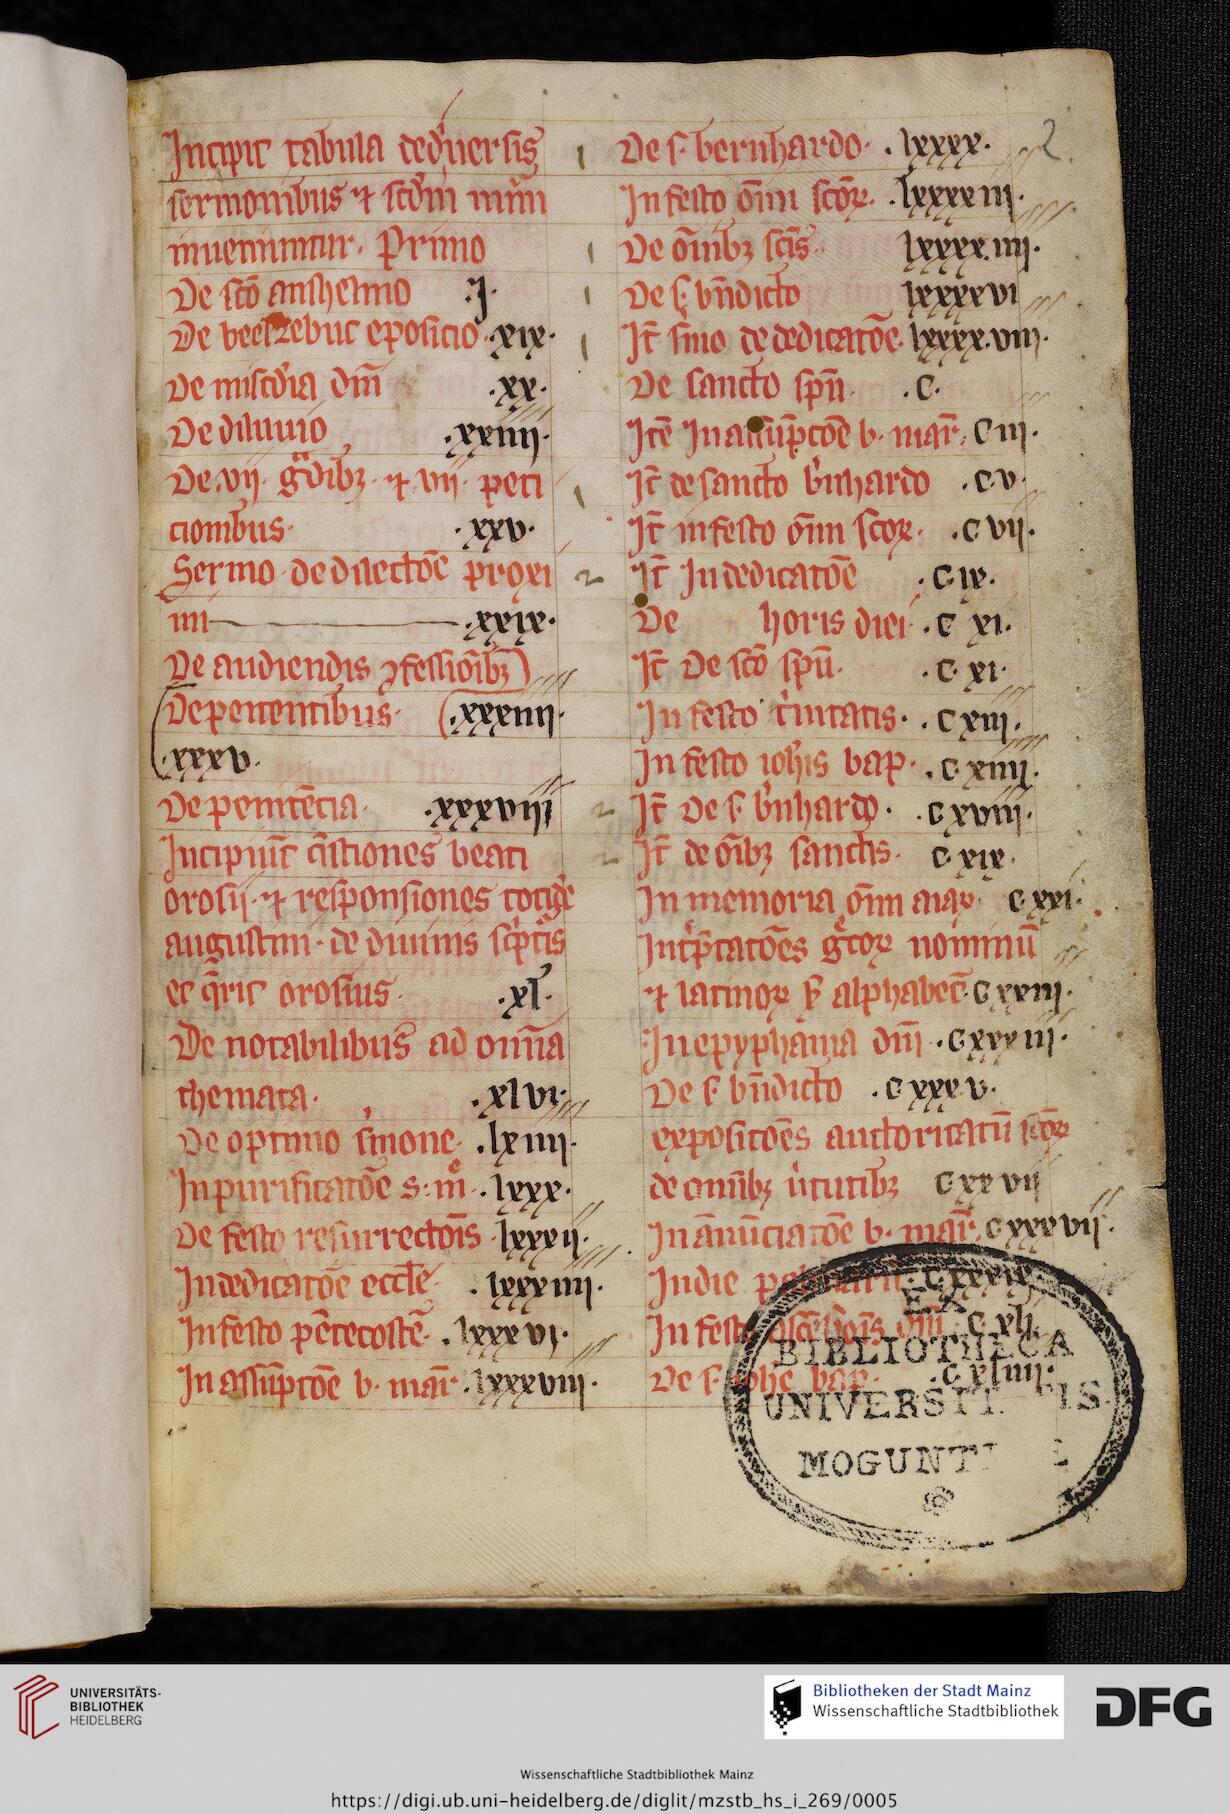 Incipit tabula dediuersis
sermonibus ⁊ scdm
inueniuntur. Primo
De sco anshelmo .j.
De beelzebuc eposicio .xix.
De miscdia dni .xx.
De diluuio .xxiiij.
De .vij. gdibꝫ ⁊ .vij. peti
cionibus. .xxv.
Sermo de dilectōe proxi
mi .xxix.
De audiendis ꝯfessiōibꝫ
De penitentibus. .xxxiiij.
.xxxv.
De penitēcia. .xxxviij
Incipiūt q̄stiones beati
orosij. ⁊ responsiones
augustini. de diuinis sc̓pt̓is
et q̄rit orosius. .xl.
De notabilibus ad omīa
themata. .xlvi.
De optimo s̓mone. .lxiiij.
In purificatōe s. m̄. .lxxx.
De festo resurrectōis .lxxxij.
In dedicatōe eccl̄e. .lxxxiiij.
In festo pētecostē. .lxxxvi.
In assūpcōe b. mar̄. .lxxxviii.
De s. bernhardo. .lxxxx.
In festo ōm̄i scōꝝ. .lxxxxiij.
De ōmibꝫ sc̄is. lxxxx.iiij.
De s. bn̄dicto lxxxxvi
It̄ s̓mo de dedicatōe. lxxxx.viij.
De sancto sp̄u. .c.
Itē In assūpcōe b. mar̄. c iij.
It̄ de sancto b̓nhardo .c.v.
It̄ in festo ōm̄i scoꝝ. .c vij.
It̄ In dedicatōe .c.ix.
De horis diei .c xi.
It̄ De scō sp̄u. .c.xi.
In festo t̓nitatis. .c xiij.
In festo ioh̓is bap. .c.xiiij.
It̄ De s. b̓nhardo. .c.xviij.
It̄ de ōibꝫ sanctis. c.xix.
In memoria ōm̄i aiaꝝ. c.xxi.
Int̓p̄tatōes g̓coꝝ nominū
⁊ latinoꝝ alphabet̄. c xxiij.
In epyphania dn̄i .cxxxiij.
De s. bn̄dicto .c xxx v.
expositōes auctoritatū scōꝝ
de omībꝫ ūtutibꝫ
In ānūciatōe b. mar̄. cxxxvij.
In die .cxxxix.
In festo ascēsiōis dn̄i .c.xlj.
De s. iohe bap. .c xliiij.
2
EX
BIBLIOTHECA
MOGUNT
UNIVERSITÄTS-
BIBLIOTHEK
HEIDELBERG
Bibliotheken der Stadt Mainz
Wissenschaftliche Stadtbibliothek
DFG
Wissenschaftliche Stadtbibliothek Mainz
https://digi.ub.uni-heidelberg.de/diglit/mzstb_hs_i_269/0005